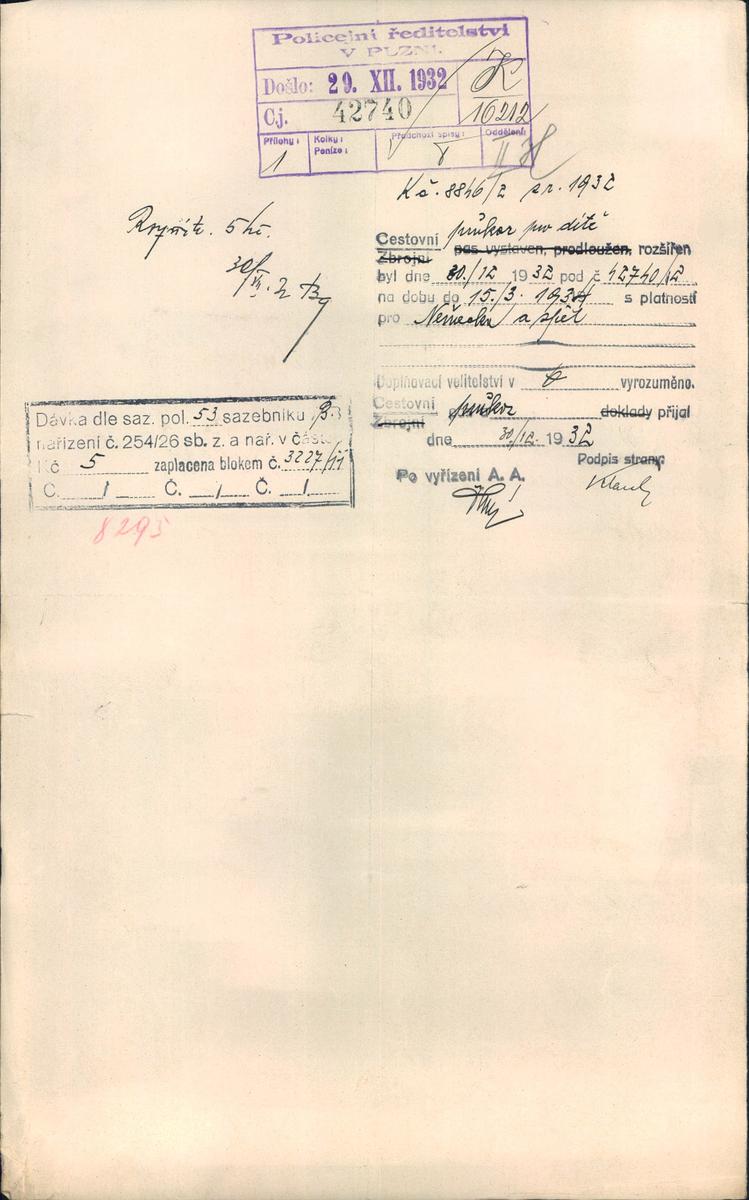 Policejní ředitelství
V PLZNI.
Došlo: 29. XII. 1932
K
Čj. 42740
16212
Přílohy: 1 Kolky: Peníze: Předchozí spisy: Oddělení: II
K č. 8846/2 z r. 1932
5 Kč.
30/XII. 2
Cestovní průkaz pro dítě
Zbrojní pas vystaven, prodloužen, rozšířen
byl dne 30./12 1932 pod č 42740/32
na dobu do 15./3. 193 s platností
pro Německo a zpět
Doplňovací velitelství v vyrozuměno.
Cestovní průkaz
Zbrojní doklady přijal
dne 30/12. 1932
Podpis strany:
Po vyřízení A. A.
Dávka dle saz. pol. 53 sazebníku B
nařízení č. 254/26 sb. z. a nař. v části
Kč 5 zaplacena blokem č. 3227/11
Č. / Č. / Č. /
8295